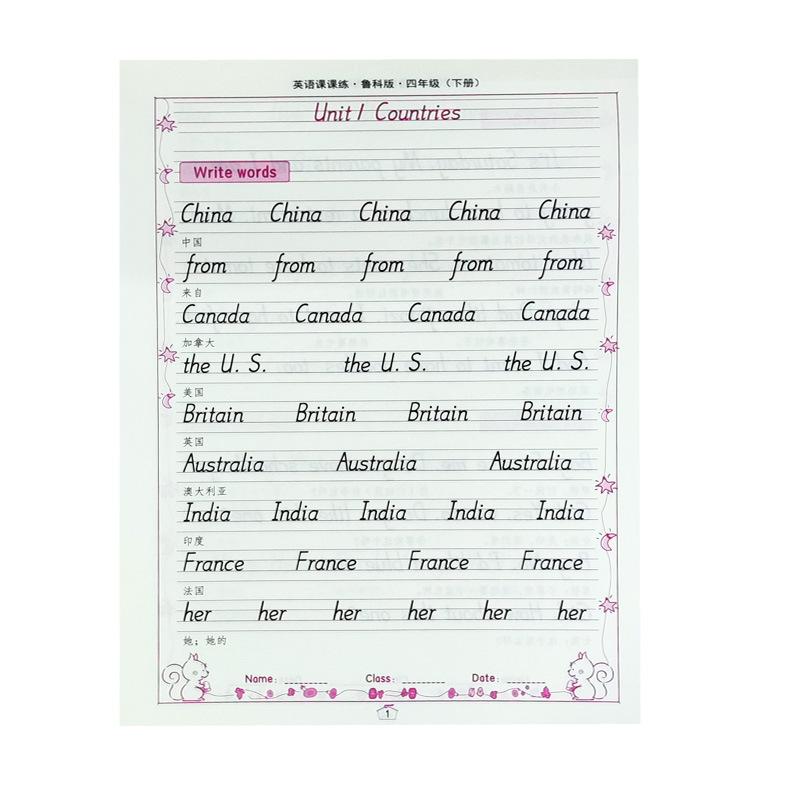 英语课课练·鲁科版·四年级（下册）
Unit 1 Countries
Write words
China China China China China
中国
from from from from from
来自
Canada Canada Canada Canada
加拿大
the U. S. the U. S. the U. S.
美国
Britain Britain Britain Britain
英国
Australia Australia Australia
澳大利亚
India India India India India
印度
France France France France
法国
her her her her her her
她；她的
Name: ________ Class: ________ Date: ________
1